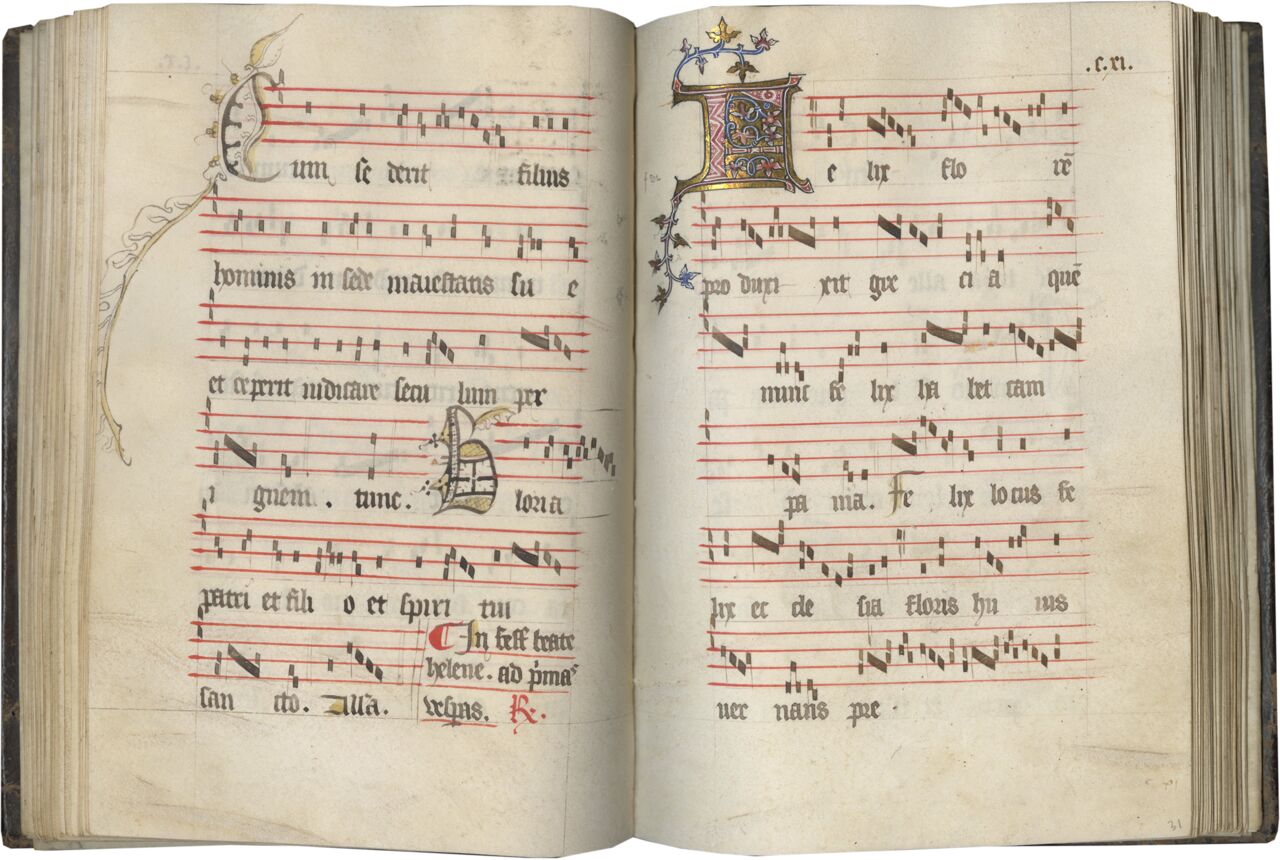 Cum se derit filius
hominis in sede maiestatis su e
et ceperit iudicare seculum per
i gnem . tunc. Gloria
patri et fili o et spiri tui
san cto. Alla.
In fest beate
helene. ad p'mas
vespas. R.
.c.xi.
Felix flo rē
pro duxi xit gre ci a quē
nunc fe lix ha bet cam
pa nia. Fe lix locus fe
lix et cle sia floris hu ius
ver nans pre
31